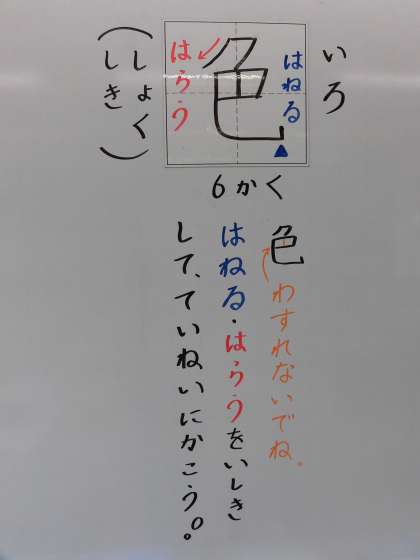 いろ
色
はねる
はらう
(しょく
しき)
6かく
色わすれないでね。
はねる・はらうをいしき
して、ていねいにかこう。